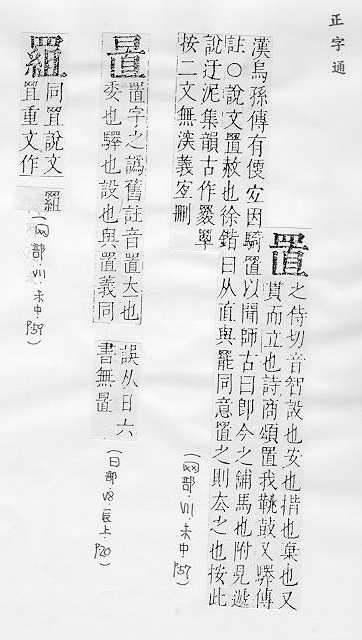 正字通
置 之侍切音智設也安也措也棄也又
而立也詩商頌置我鞉鼓又驛傳
漢烏孫傳有便宜因騎置以聞師古曰即今之鋪馬也附見遞
註〇說文置赦也徐鍇曰从直與罷同意置之則去之也按此
說迂泥集韻古作
按二文無義宜刪
(网部·VII·未中·P57)
置字之譌舊註音置大也
委也驛也設也與置義同
誤从日六
書無
(日部·V8·辰上·P20)
羅 同罝說文
罝重文作羅
(网部·VII·未中·P59)